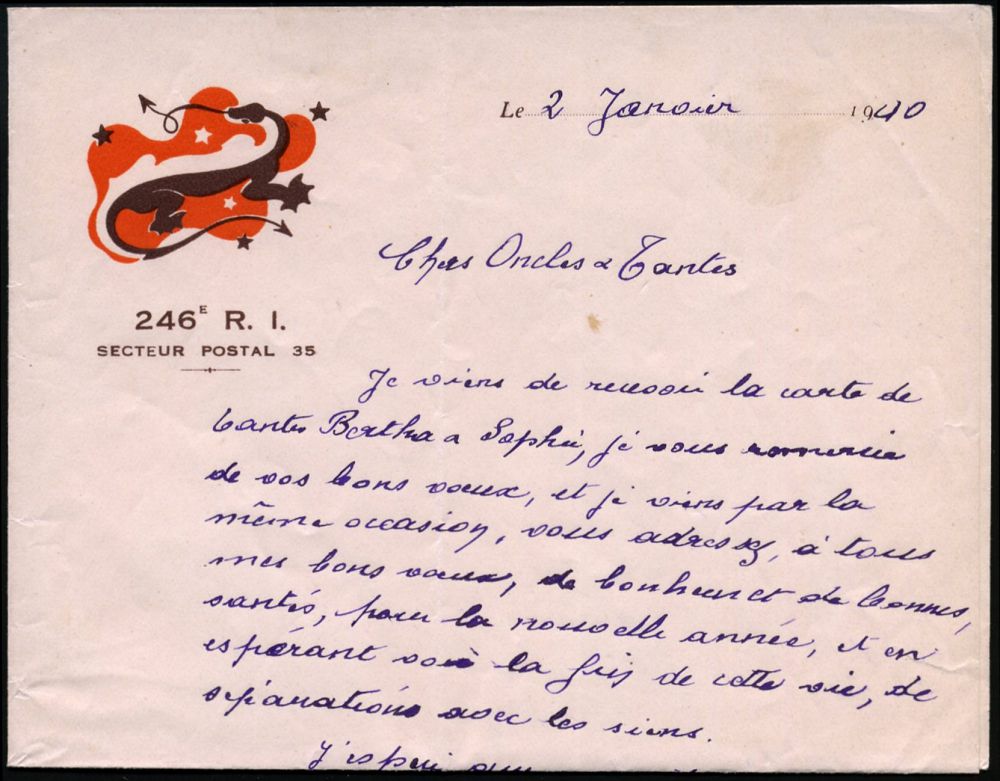 Le 2 Janvier 1940
246E R. I.
SECTEUR POSTAL 35
Chers Oncles & Tantes
Je viens de recevoir la carte de
tantes Bertha & Sophie, je vous remercie
de vos bons vœux, et je viens par la
même occasion, vous adresser, à tous
mes bons vœux, de bonheur et de bonnes,
santés, pour la nouvelle année, et en
espérant voir la fin de cette vie, de
séparations avec les siens.
J'espère que